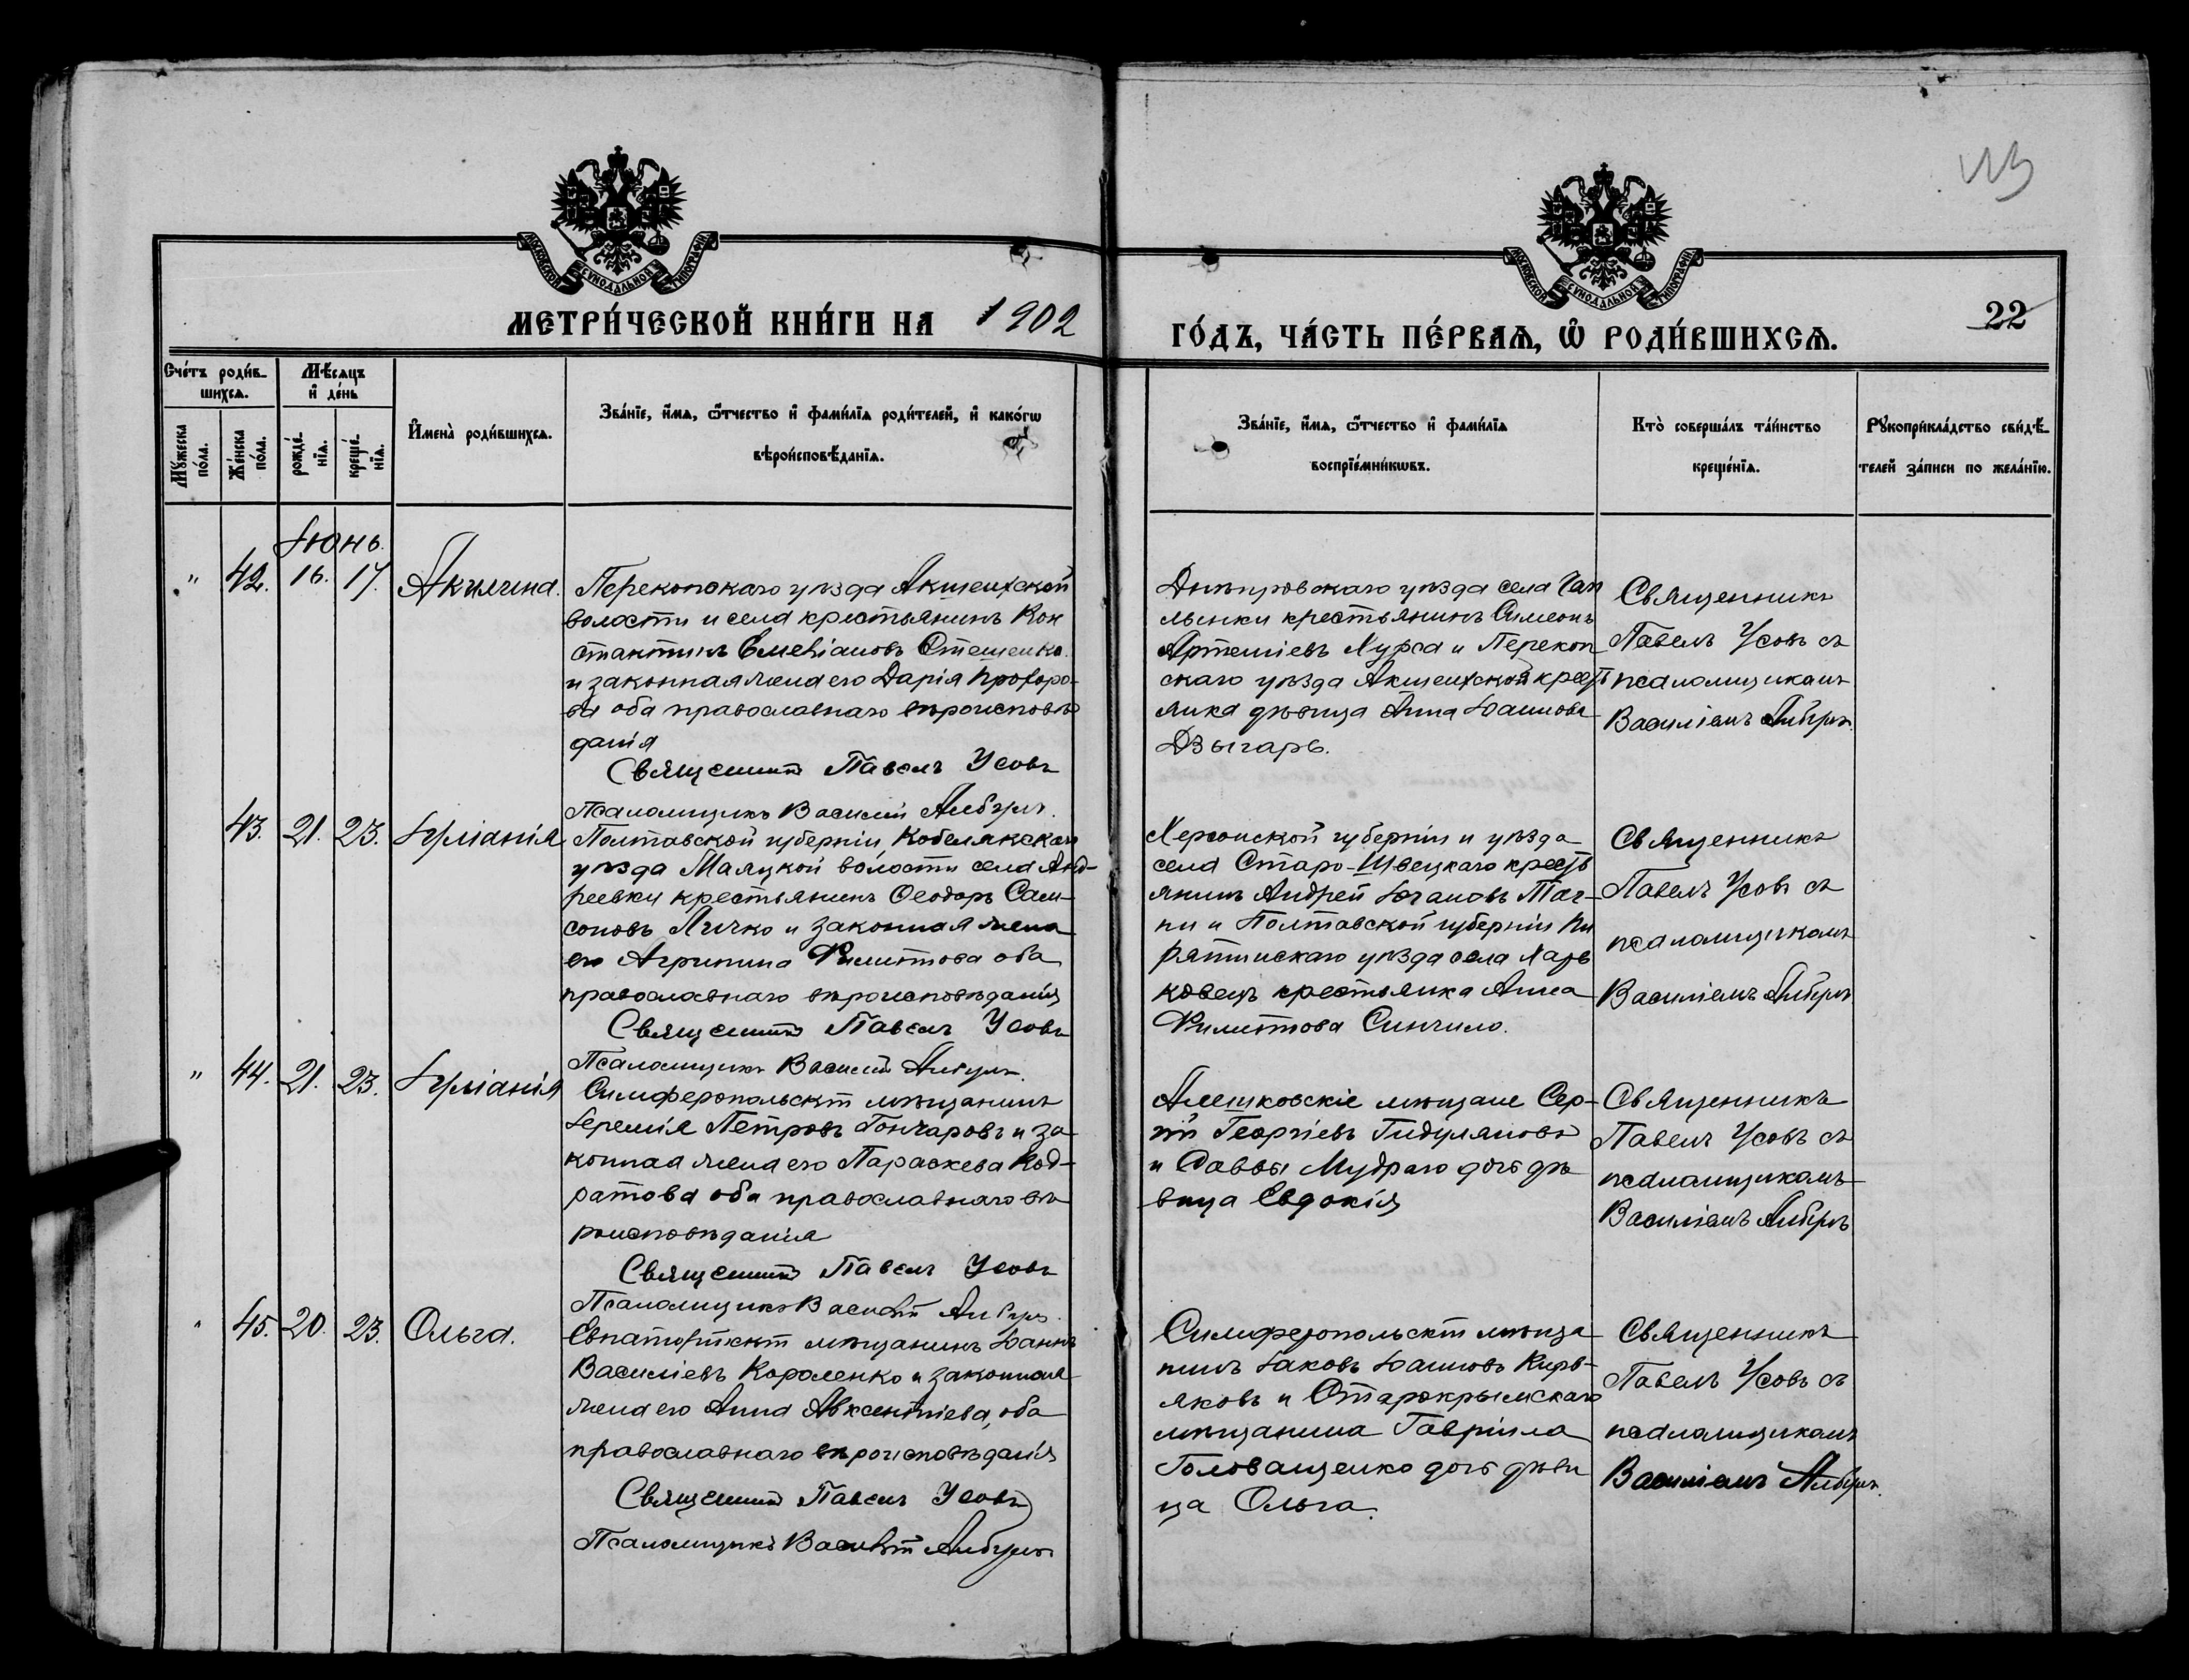 113
22
МОСКОВСКОЙ СѴНОДАЛЬНОЙ ТИПОГРАФІИ
МОСКОВСКОЙ СѴНОДАЛЬНОЙ ТИПОГРАФІИ
МЕТРИ́ЧЕСКОЙ КНИ́ГИ НА 1902
ГО́ДЪ, ЧА́СТЬ ПЕ́РВАѦ, Ѽ РОДИ́ВШИХСѦ.
Сче́тъ роди́в-
шихсѧ.
Мꙋ́жеска
по́ла.
Же́нска
по́ла.
Мѣ́сѧцъ
и҆ де́нь
рожде́-
нїѧ.
креще́-
нїѧ.
И҆мена̀ роди́вшихсѧ.
Зва́нїе, и҆́мѧ, ѻ҆́тчество и҆ фами́лїѧ роди́телей, и҆ како́гѡ
вѣроисповѣ́данїѧ.
Зва́нїе, и҆́мѧ, ѻ҆́тчество и҆ фами́лїѧ
воспрїе́мникѡвъ.
Кто̀ соверша́лъ та́инство
креще́нїѧ.
Рꙋкоприкла́дство свидѣ́-
телей за́писи по жела́нїю.
Іюнь.
" 42. 16. 17. Акилина.
Перекопскаго уѣзда Акшеихской
волости и села крестьянинъ Кон
стантинъ Емеліановъ Стешенко
и законная жена его Дарія Прохоро-
ва оба православнаго вѣроисповѣ
данія
Священникъ Павелъ Усовъ
Псаломщикъ Василій
Днѣпровскаго уѣзда села Чап
льинки крестьянинъ Симеонъ
Артеміевъ Хурса и Перекоп
скаго уѣзда Акшеихской крест
янка дѣвица Анна Іоаннова
Дзыгарь.
Священникъ
Павелъ Усовъ съ
псаломщикомъ
Василіемъ
43. 21. 23. Іуліанія
Полтавской губерніи, Кобелякскаго
уѣзда Маяцкой волости села Анд-
реевки крестьянинъ Ѳеодоръ Сам-
соновъ Личко и законная жена
его Агрипина Филиппова оба
православнаго вѣроисповѣданія
Священникъ Павелъ Усовъ
Псаломщикъ Василій
Херсонской губерніи и уѣзда
села Старо-Шведскаго крест
янинъ Андрей Югановъ
и Полтавской губерніи Пи
рятинскаго уѣзда села Харь
ковецъ крестьянка Анна
Филиппова Синчило.
Священникъ
Павелъ Усовъ съ
псаломщикомъ
Василіемъ
" 44. 21. 23. Іуліанія
Симферопольскій мѣщанинъ
Іеремія Петровъ Гончаровъ и за
конная жена его Параскева Код-
ратова оба православнаго вѣ
роисповѣданія
Священникъ Павелъ Усовъ
Псаломщикъ Василій
Алешковскіе мѣщане Сер-
гій Георгіевъ Гидуляновъ
и Саввы Мудраго дочь дѣ
вица Евдокія
Священникъ
Павелъ Усовъ съ
псаломщикомъ
Василіемъ
" 45. 20. 23. Ольга.
Евпаторійскій мѣщанинъ Іоаннъ
Василіевъ Короленко и законная
жена его Анна Авксентіева, оба
православнаго вѣроисповѣданія
Священникъ Павелъ Усовъ
Псаломщикъ Василій
Симферопольскій мѣща
нинъ Іаковъ Іоанновъ Кирь-
яковъ и Старокрымскаго
мѣщанина Гавріила
Голованценко дочь дѣви
ца Ольга.
Священникъ
Павелъ Усовъ съ
псаломщикомъ
Василіемъ